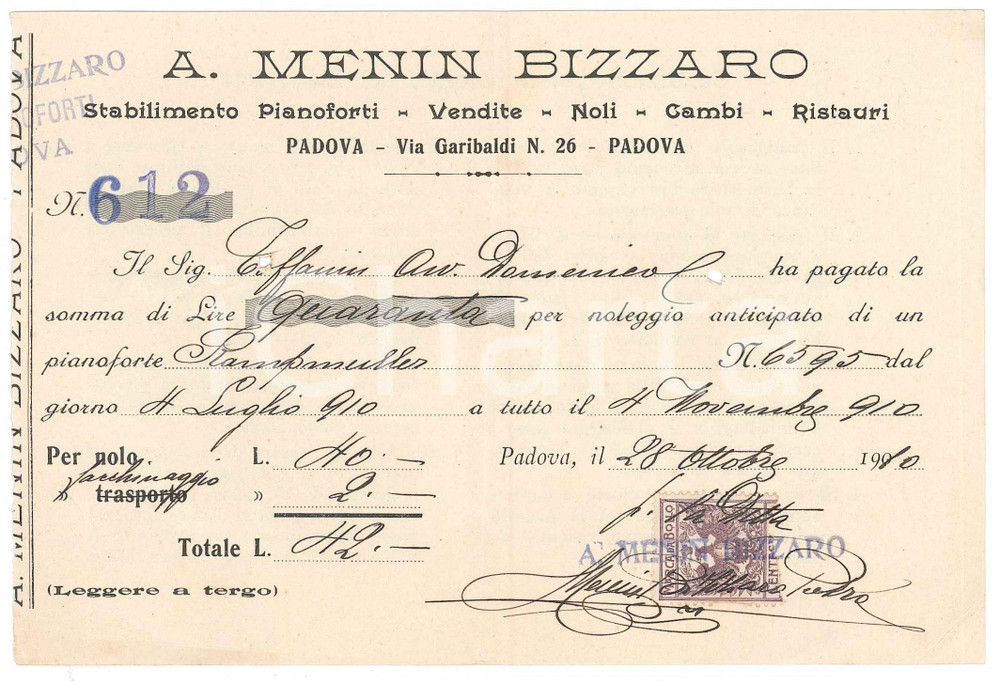 A. MENIN BIZZARO
Stabilimento Pianoforti - Vendite - Noli - Cambi - Ristauri
PADOVA - Via Garibaldi N. 26 - PADOVA
BIZZARO
OFORTI
OVA
A. MENIN BIZZARO PADOVA
N. 612
Il Sig. Avv. Domenico ha pagato la
somma di Lire Quaranta per noleggio anticipato di un
pianoforte Kampmuller N. 6595 dal
giorno 4 Luglio 910 a tutto il 4 Novembre 910
Per nolo L. 40.— Padova, il 28 Ottobre 1910
facchinaggio
» trasporto » 2.—
p. la Ditta
A. MENIN BIZZARO
Totale L. 42.—
(Leggere a tergo)
iCharta